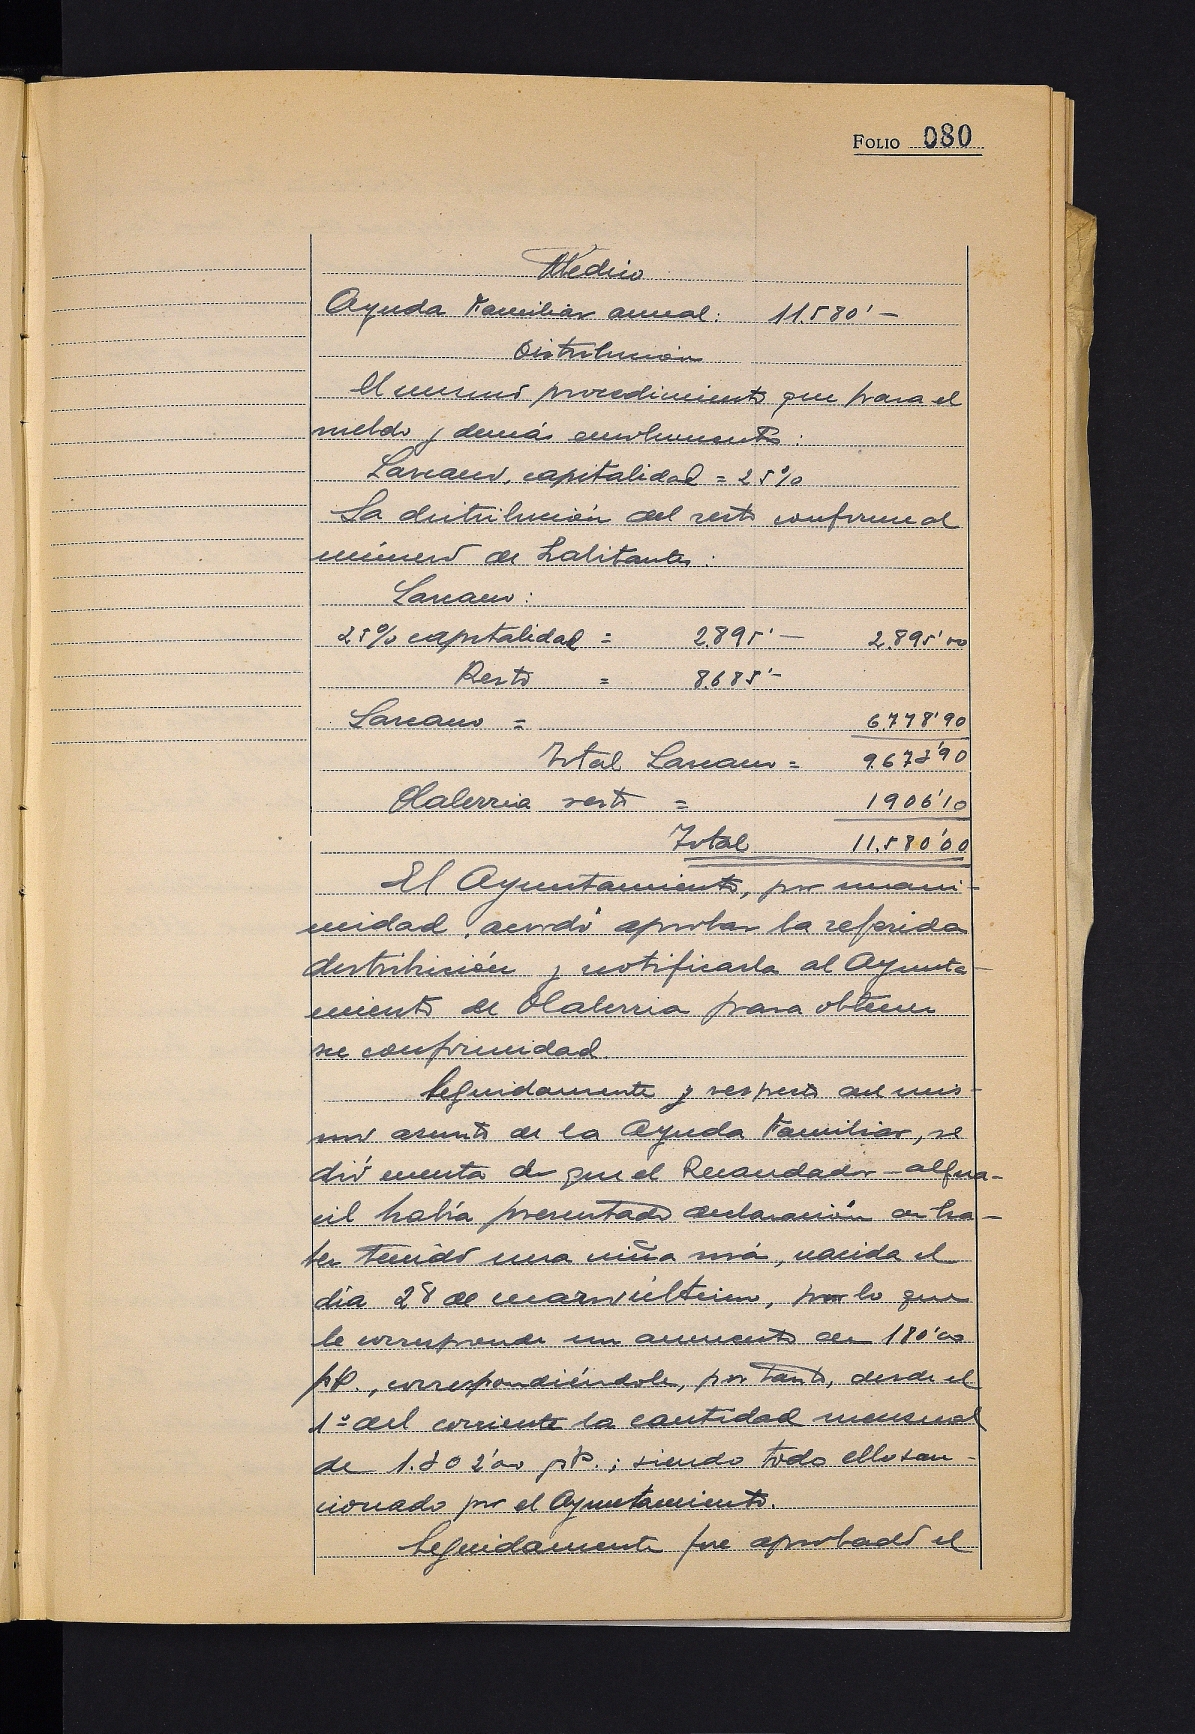 FOLIO 080
Médico
Ayuda Familiar anual: 11.580'—
Distribución
El mismo procedimiento que para el
sueldo y demás emolumentos:
Lazcano, capitalidad = 25%
La distribución del resto conforme al
número de habitantes:
Lazcano:
25% capitalidad = 2.895'— 2.895'00
Resto = 8.685'—
Lazcano = 6.778'90
Total Lazcano = 9.673'90
Olaberria resto = 1.906'10
Total 11.580'00
El Ayuntamiento, por unani-
midad, acordó aprobar la referida
distribición y notificarla al Ayunta-
miento de Olaberria para obtener
su conformidad.
Seguidamente y respecto del mis-
mo asunto de la Ayuda Familiar, se
dió cuenta de que el Recaudador-algua-
cil había presentado declaración de ha-
ber tenido una niña más, nacida el
día 28 de marzo último, por lo que
le corresponde un aumento de 180'00
pts., correspondiéndole, por tanto, desde el
1º del corriente la cantidad mensual
de pts.; siendo todo ello san-
cionado por el Ayuntamiento.
Seguidamente fue aprobado el